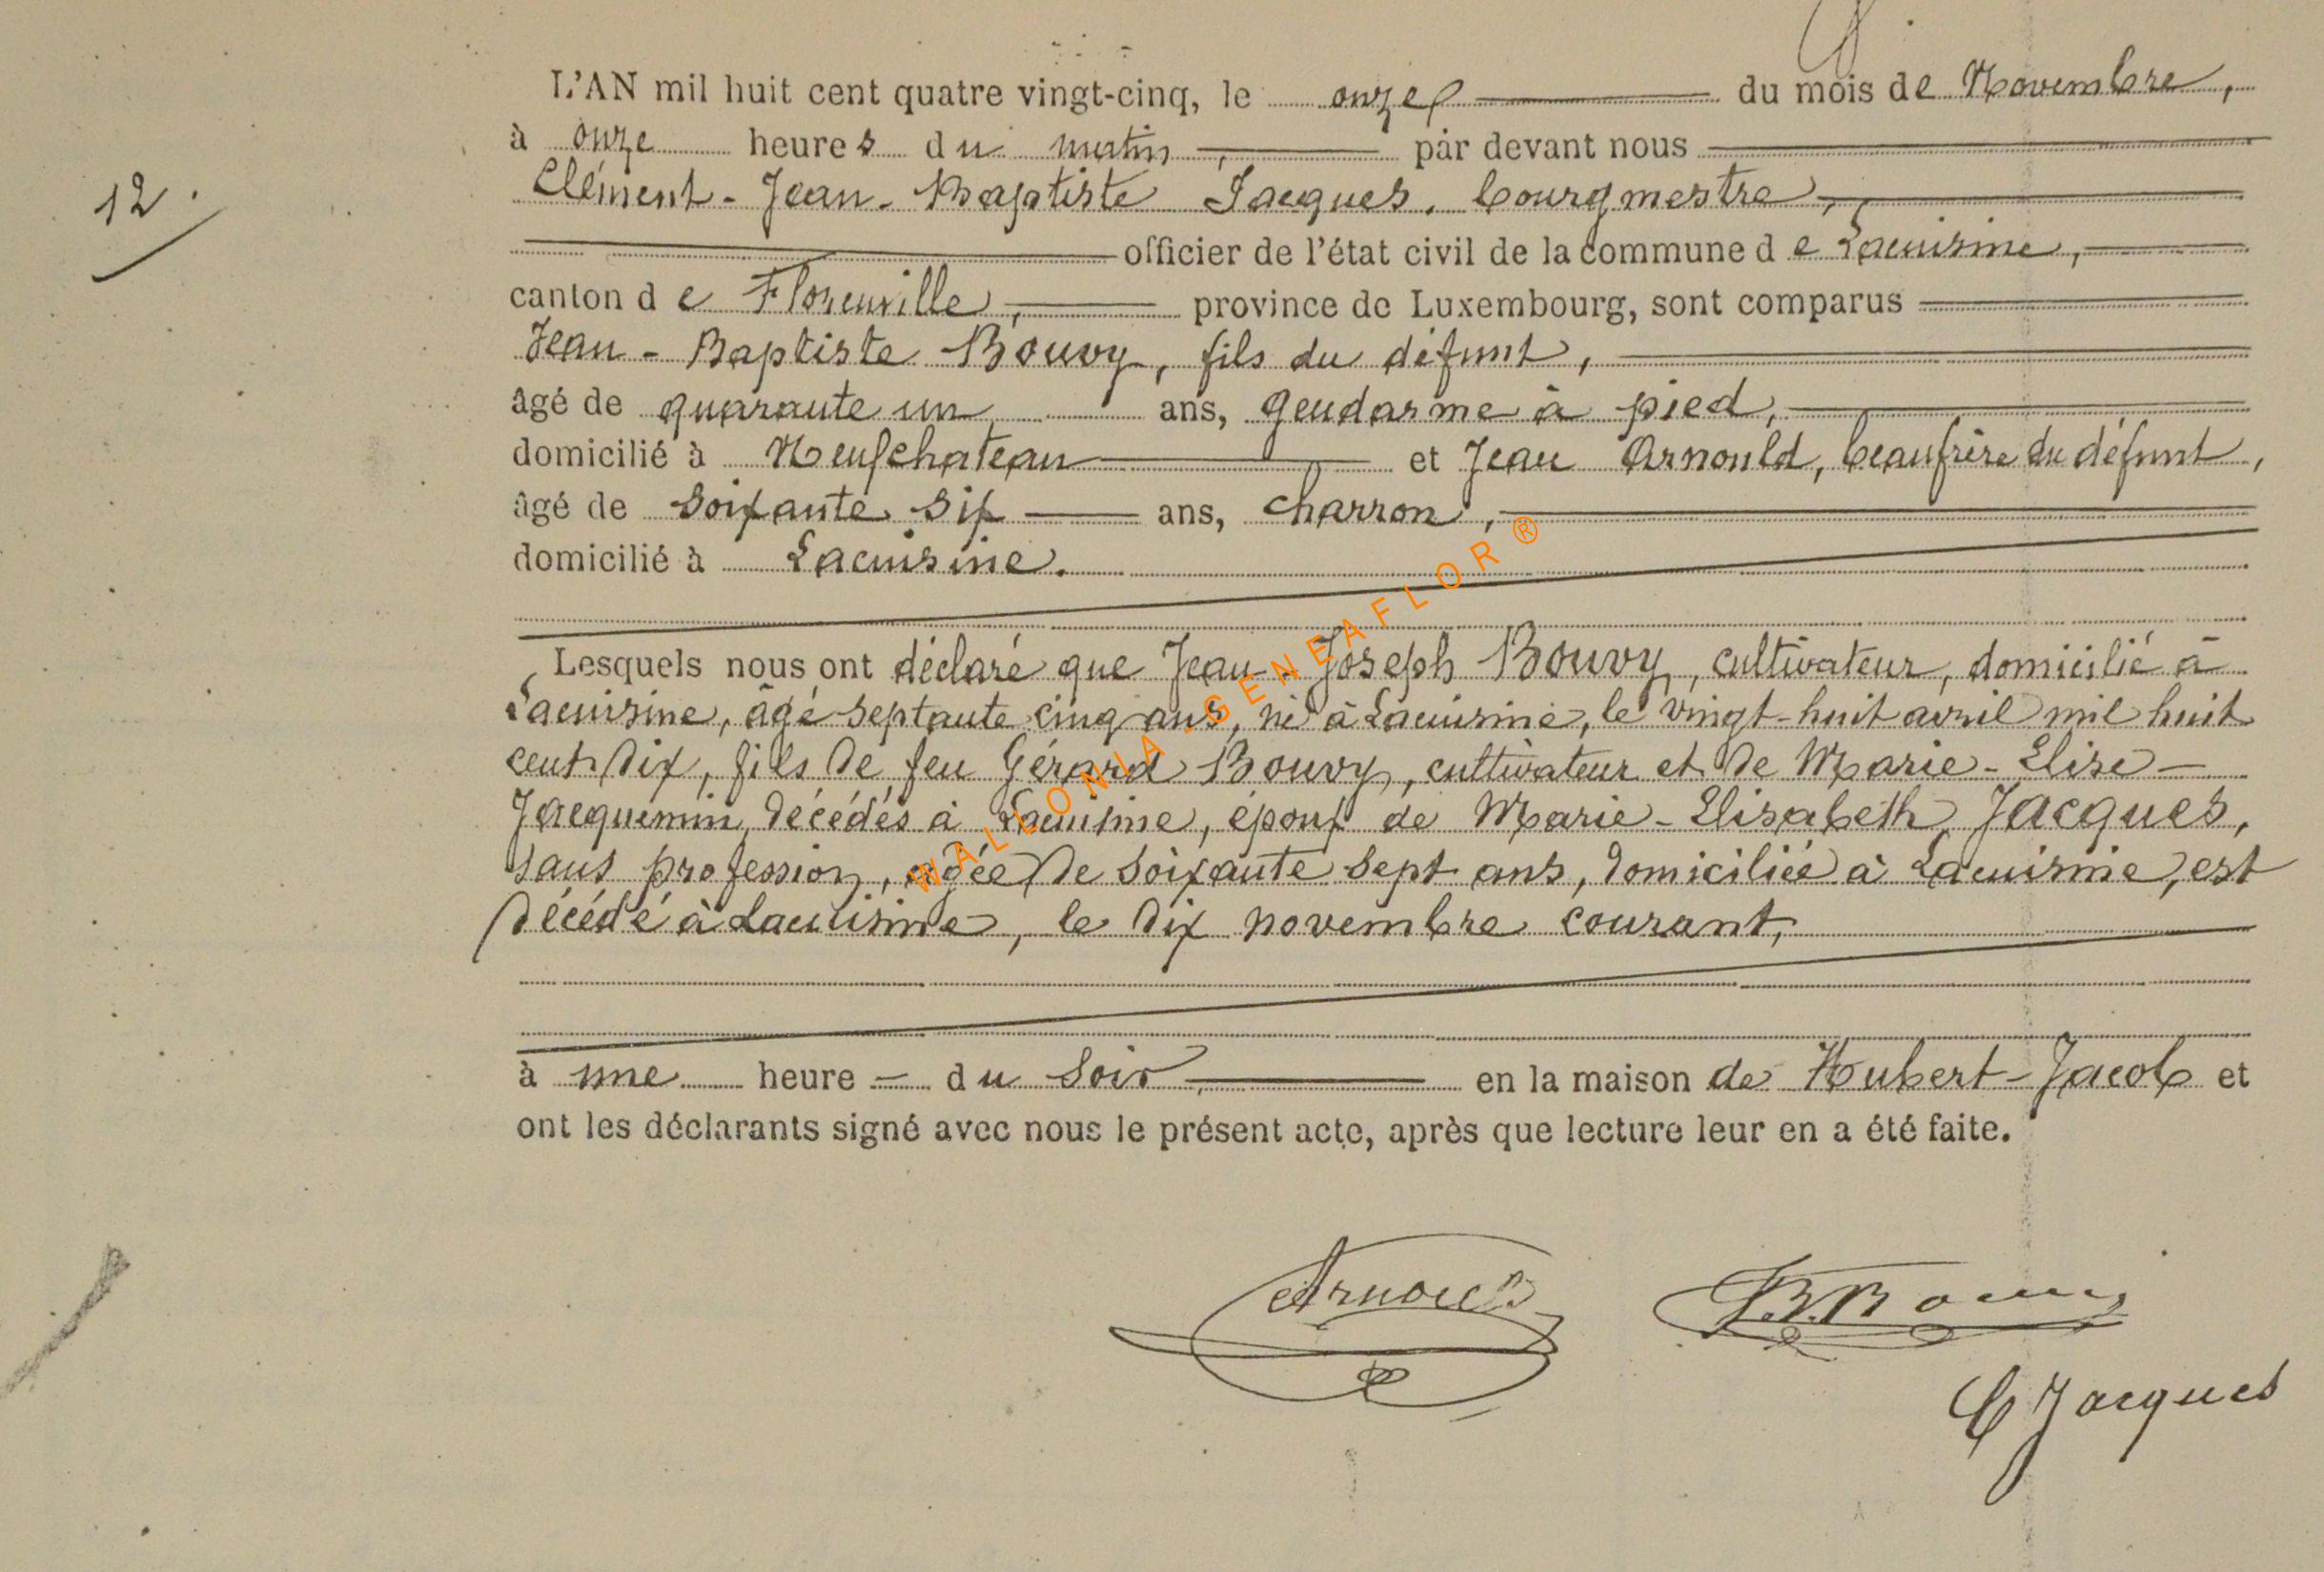 L'AN mil huit cent quatre vingt-cinq, le onze du mois de Novembre,
à onze heures du matin, par devant nous
12.
Clément-Jean-Baptiste Jacques, bourgmestre,
officier de l'état civil de la commune de Lacuisine,
canton de Florenville, province de Luxembourg, sont comparus
Jean-Baptiste Bouvy, fils du défunt,
âgé de quarante un ans, gendarme à pied,
domicilié à Neufchateau et Jean Arnould, beaufrère du défunt,
âgé de soixante six ans, charron,
domicilié à Lacuisine.
Lesquels nous ont déclaré que Jean-Joseph Bouvy, cultivateur, domicilié à
Lacuisine, âgé septante cinq ans, né à Lacuisine, le vingt-huit avril mil huit
cent dix, fils de feu Gérard Bouvy, cultivateur et de Marie-Elise-
Jacquemin, décédés à Lacuisine, époux de Marie-Elisabeth Jacques,
sans profession, agée de soixante sept ans, domiciliée à Lacuisine, est
décédé à Lacuisine, le dix novembre courant,
à une heure - du soir, en la maison de Hubert-Jacob et
ont les déclarants signé avec nous le présent acte, après que lecture leur en a été faite.
Arnould JB. Bouvy
C Jacques
WALLONIA-GENEAFLOR®